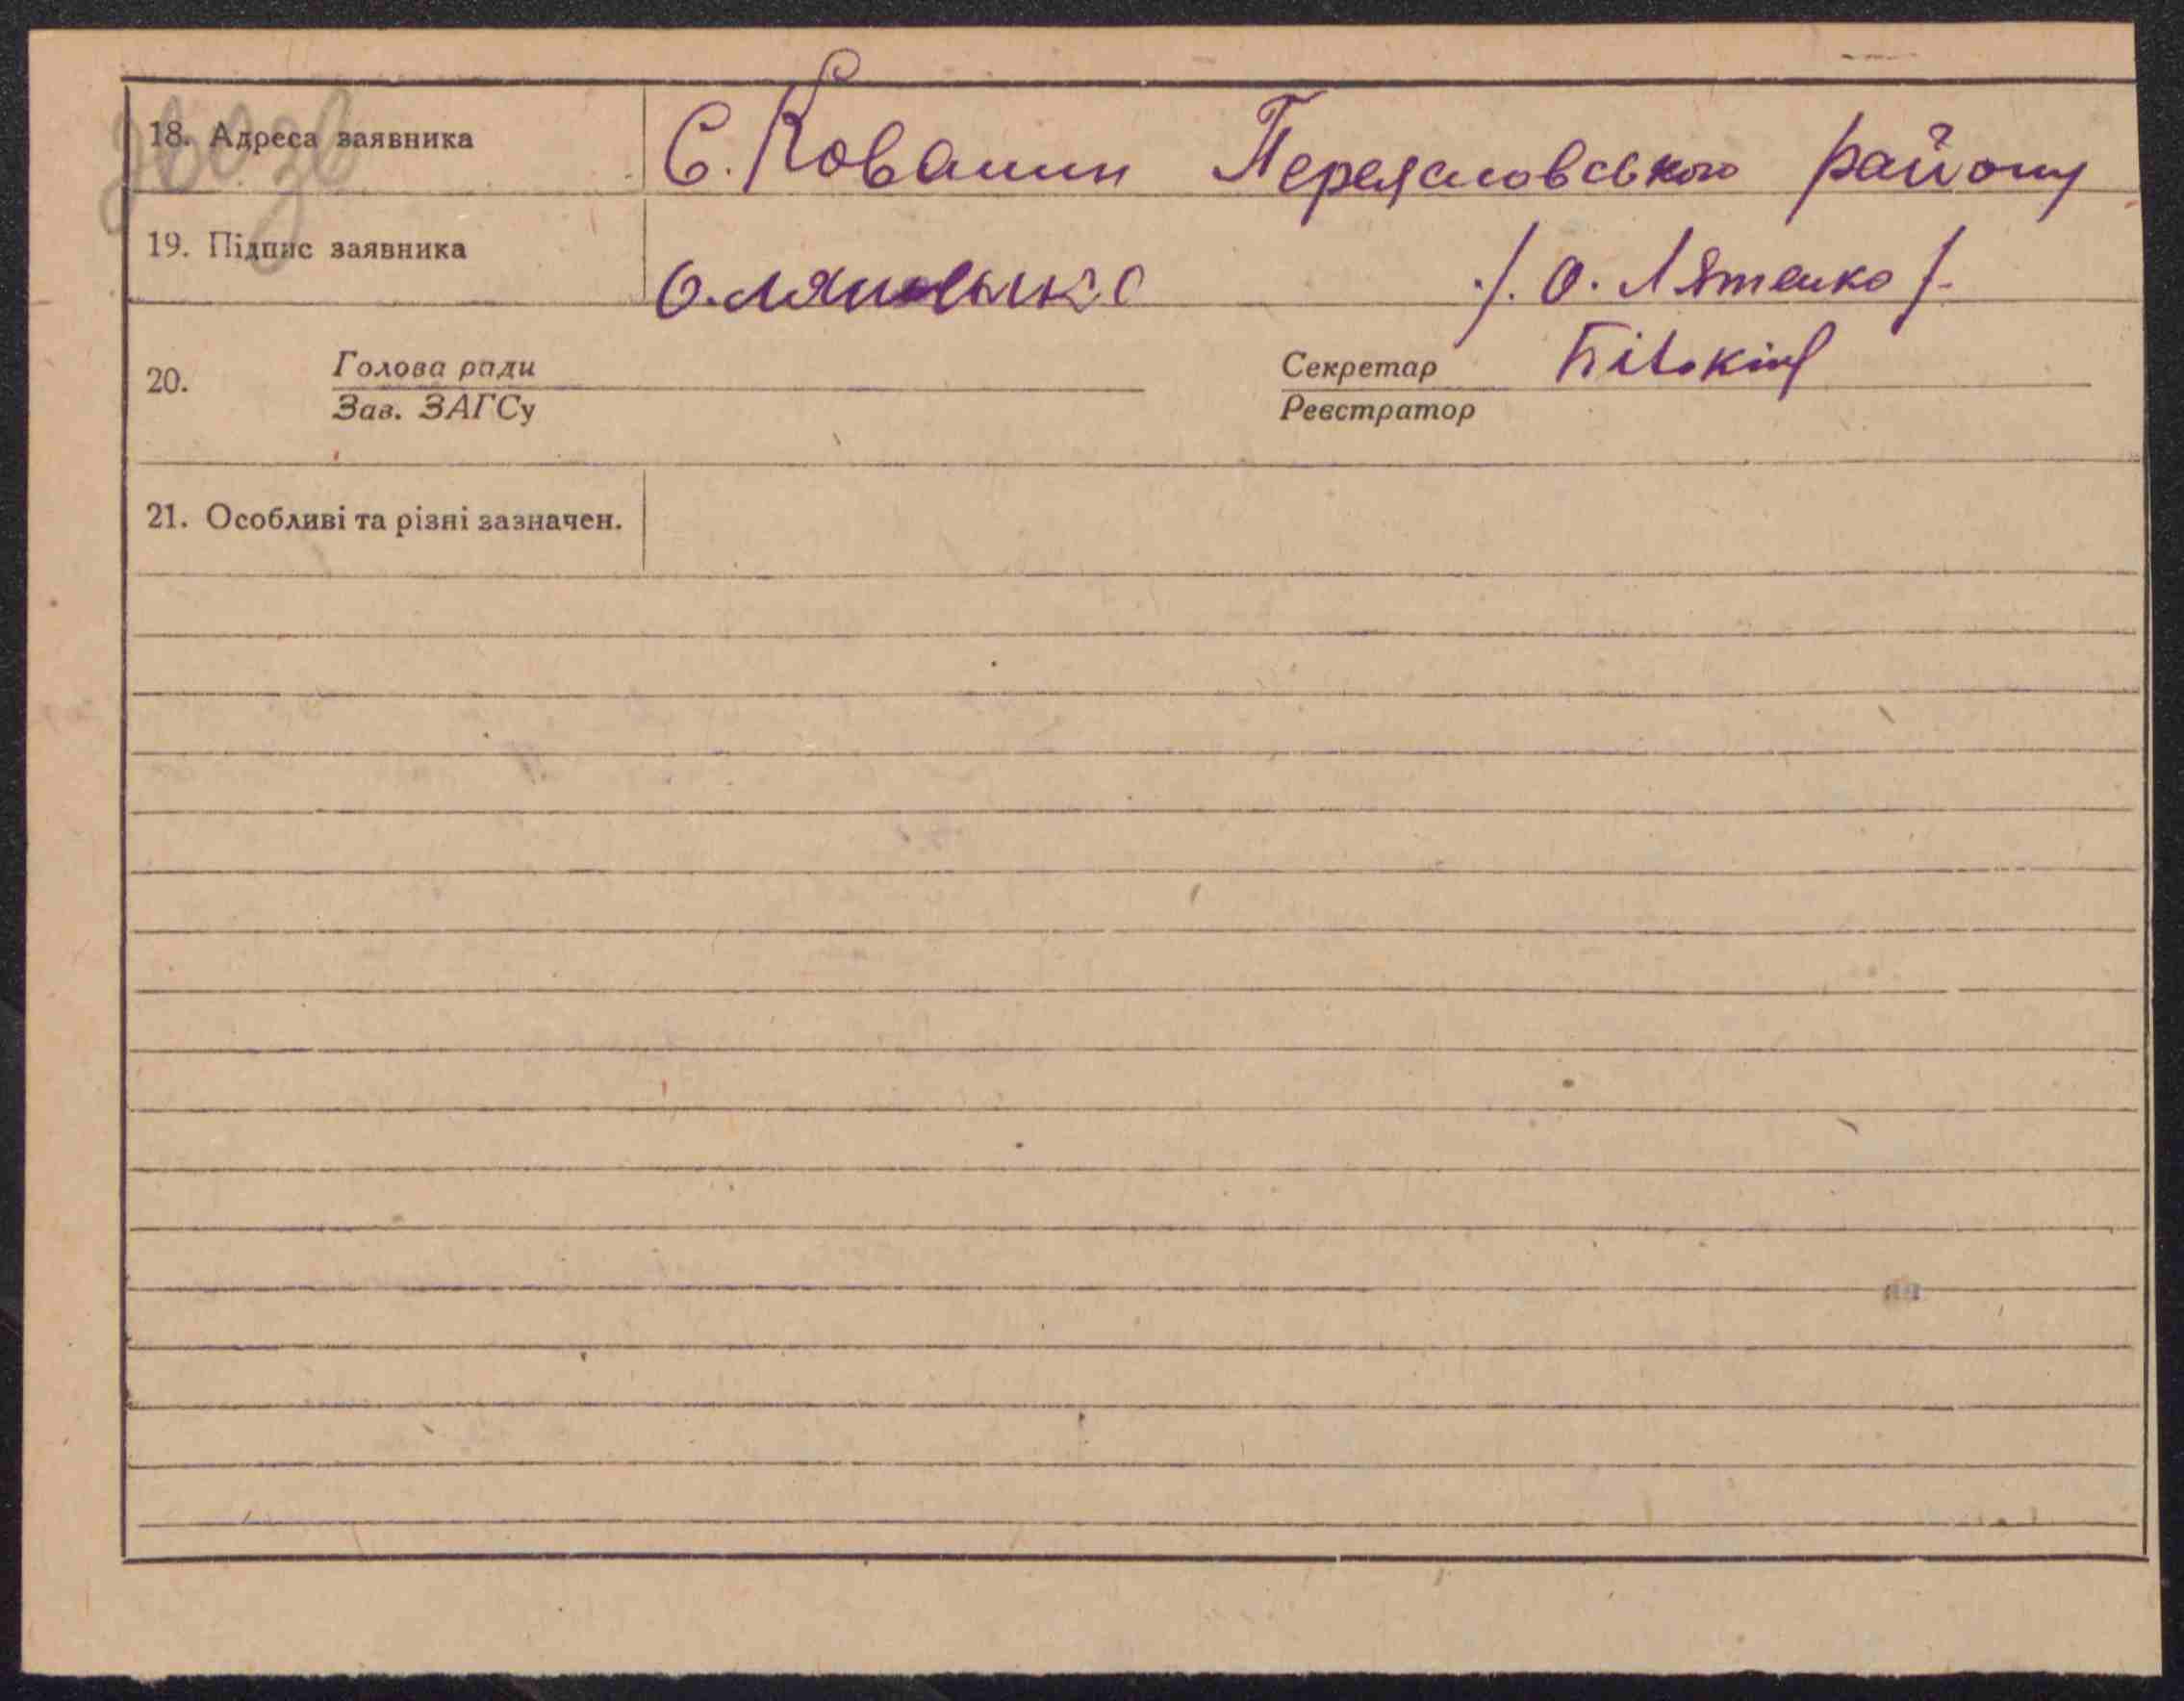 18. Адреса заявника С. Ковалин Переяславського району
19. Підпис заявника О. Лятенко ./. О. Лятенко /.
20. Голова ради Секретар
Зав. ЗАГСу Реєстратор
21. Особливі та різні зазначен.